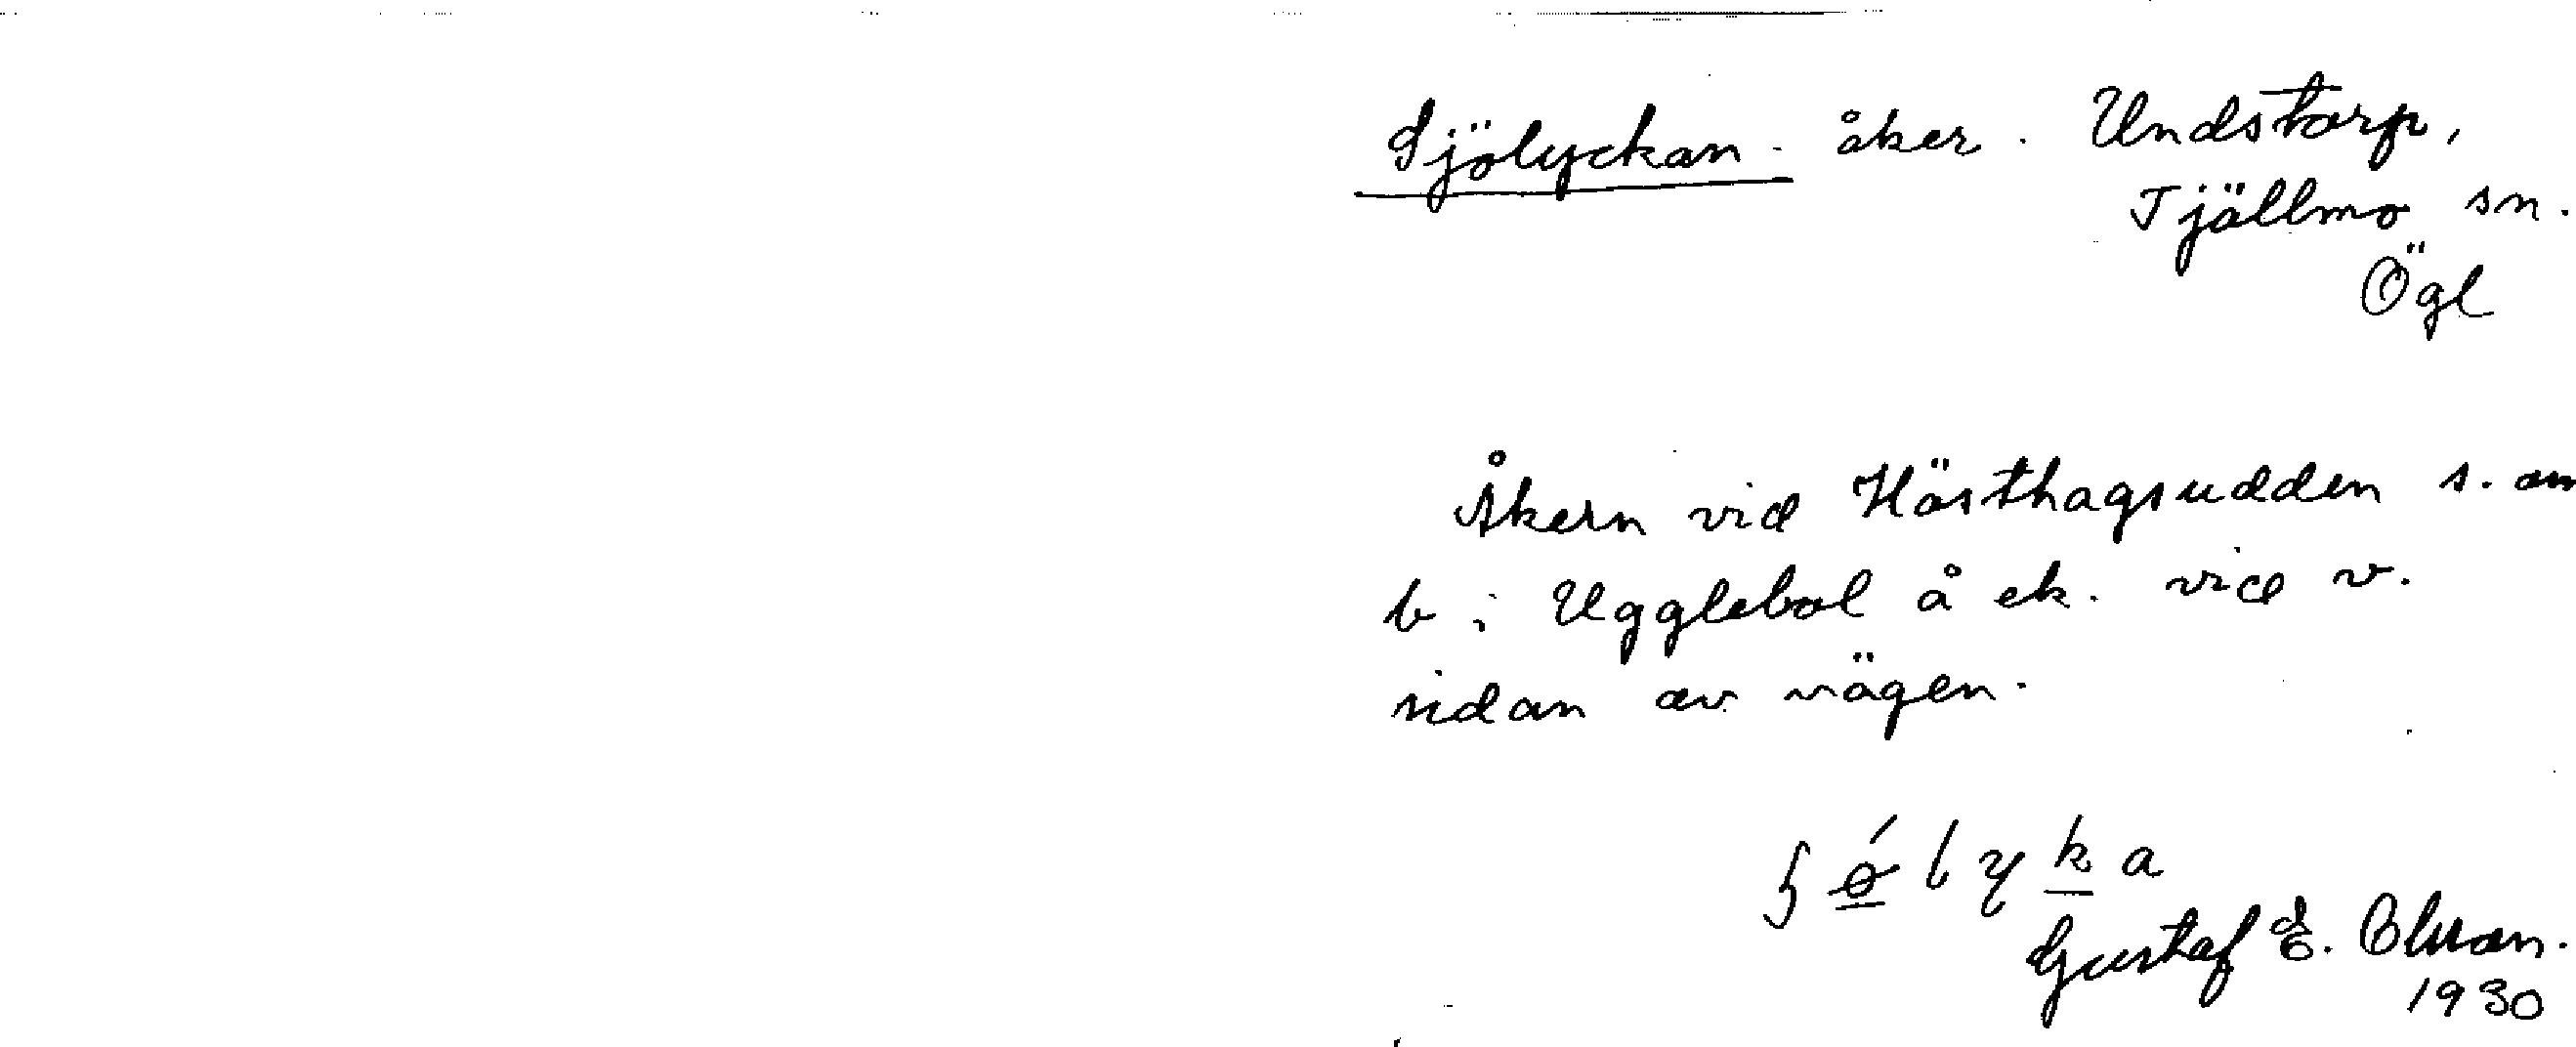 Sjölyckan - åker. Undstorp,
Tjällmo sn.
Ögl
Åkern vid Hästhagsudden s. om
b i Ugglebol å ek. vid v.
sidan av vägen.
Gustaf E.
1930